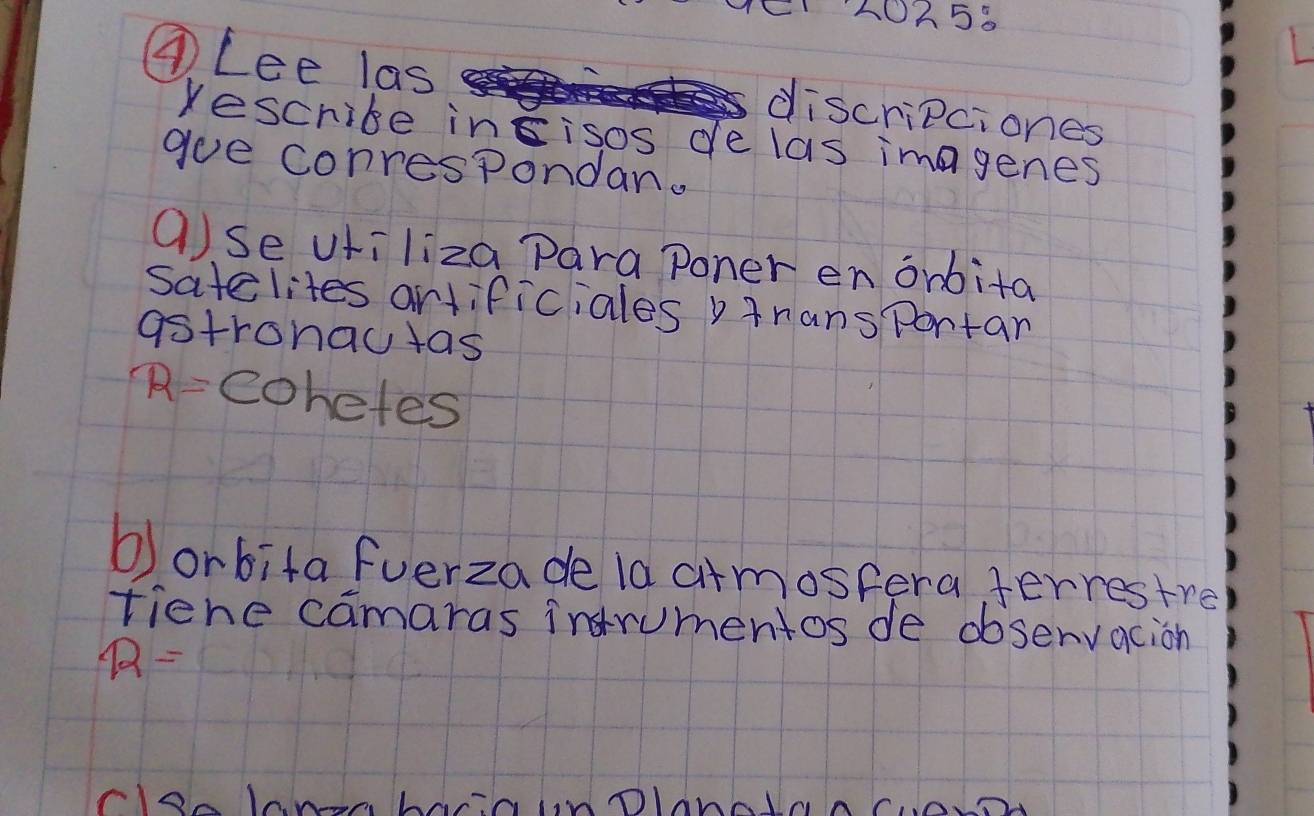 2025:
④ Lee las discripciones
y escribe incisos de las imagenes
que correspondan.
a) se utiliza para poner en órbita
satelites artificiales y transportar
astronautas
R= cohetes
b) orbita fuerza de la atmosfera terrestre
Tiene cámaras instrumentos de observación
R=
c) se lanza hacia un planeta o cuerpo